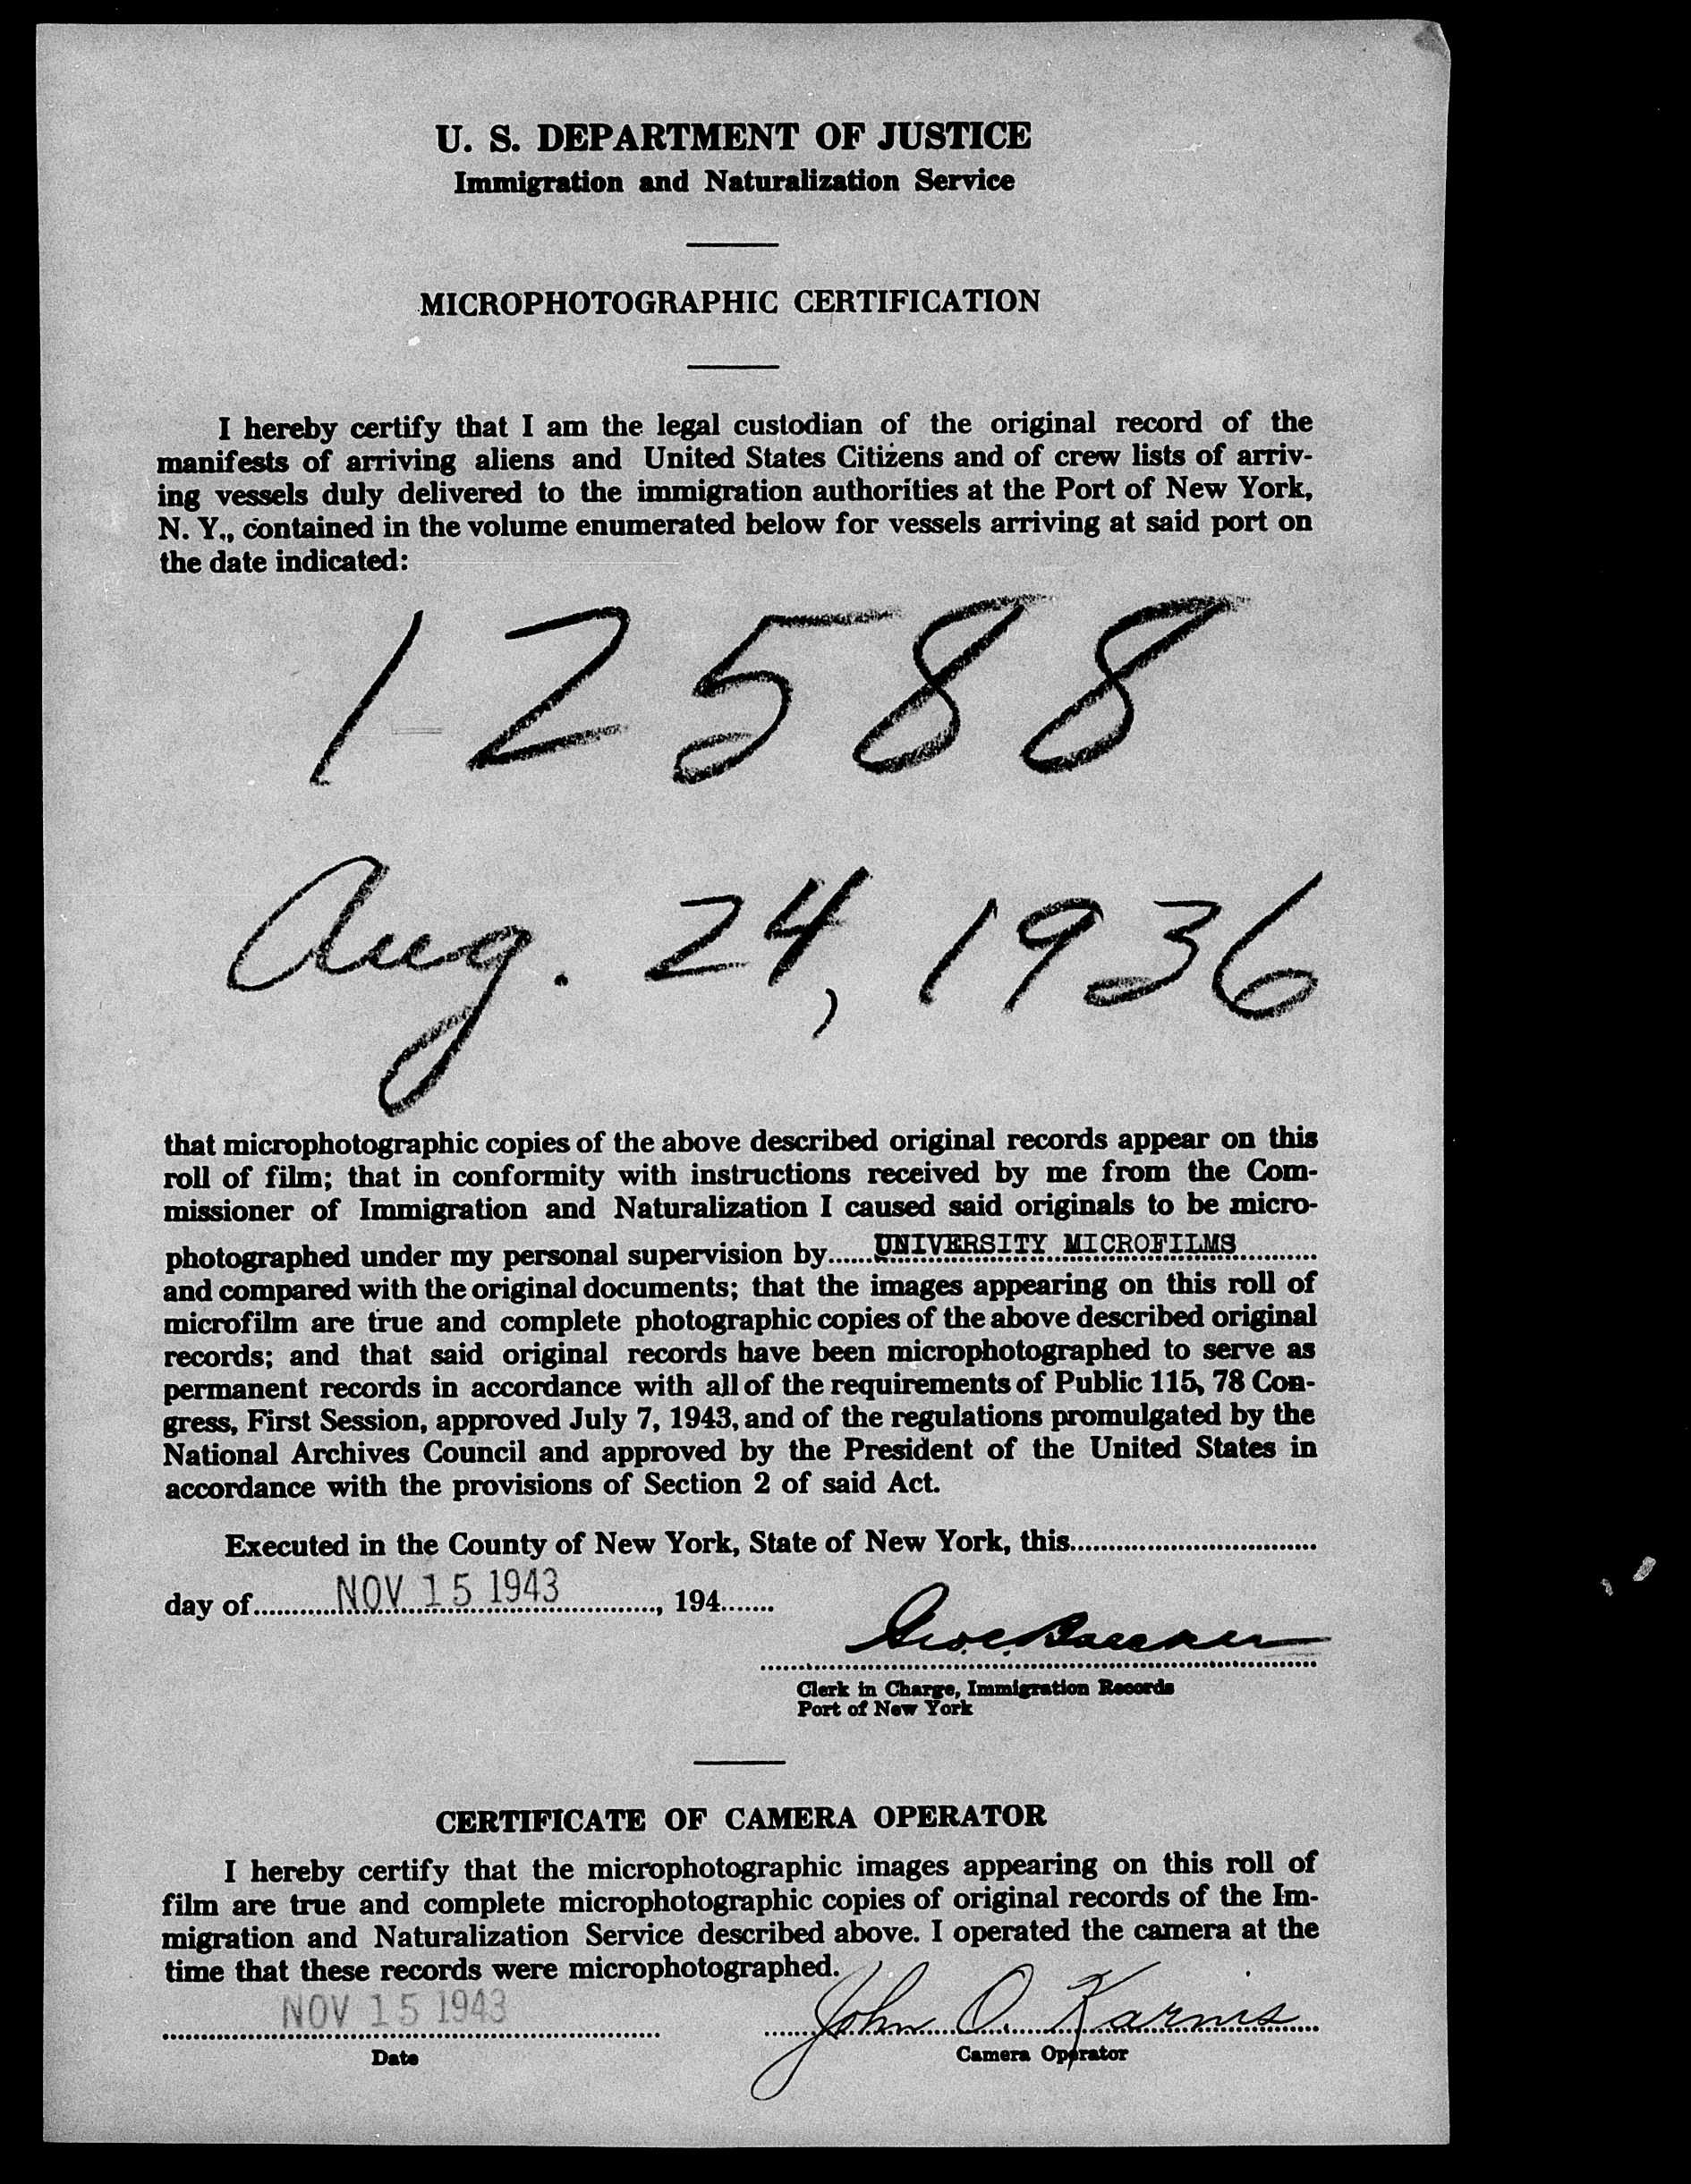 U. S. DEPARTMENT OF JUSTICE
Immigration and Naturalization Service
MICROPHOTOGRAPHIC CERTIFICATION
I hereby certify that I am the legal custodian of the original record of the
manifests of arriving aliens and United States Citizens and of crew lists of arriv-
ing vessels duly delivered to the immigration authorities at the Port of New York,
N. Y., contained in the volume enumerated below for vessels arriving at said port on
the date indicated:
12588
Aug. 24, 1936
that microphotographic copies of the above described original records appear on this
roll of film; that in conformity with instructions received by me from the Com-
missioner of Immigration and Naturalization I caused said originals to be micro-
photographed under my personal supervision by......UNIVERSITY MICROFILMS..........
and compared with the original documents; that the images appearing on this roll of
microfilm are true and complete photographic copies of the above described original
records; and that said original records have been microphotographed to serve as
permanent records in accordance with all of the requirements of Public 115, 78 Con-
gress, First Session, approved July 7, 1943, and of the regulations promulgated by the
National Archives Council and approved by the President of the United States in
accordance with the provisions of Section 2 of said Act.
Executed in the County of New York, State of New York, this................................
day of...........NOV 15 1943............, 194.......
Clerk in Charge, Immigration Records
Port of New York
CERTIFICATE OF CAMERA OPERATOR
I hereby certify that the microphotographic images appearing on this roll of
film are true and complete microphotographic copies of original records of the Im-
migration and Naturalization Service described above. I operated the camera at the
time that these records were microphotographed.
NOV 15 1943 John O. Karns
Date Camera Operator